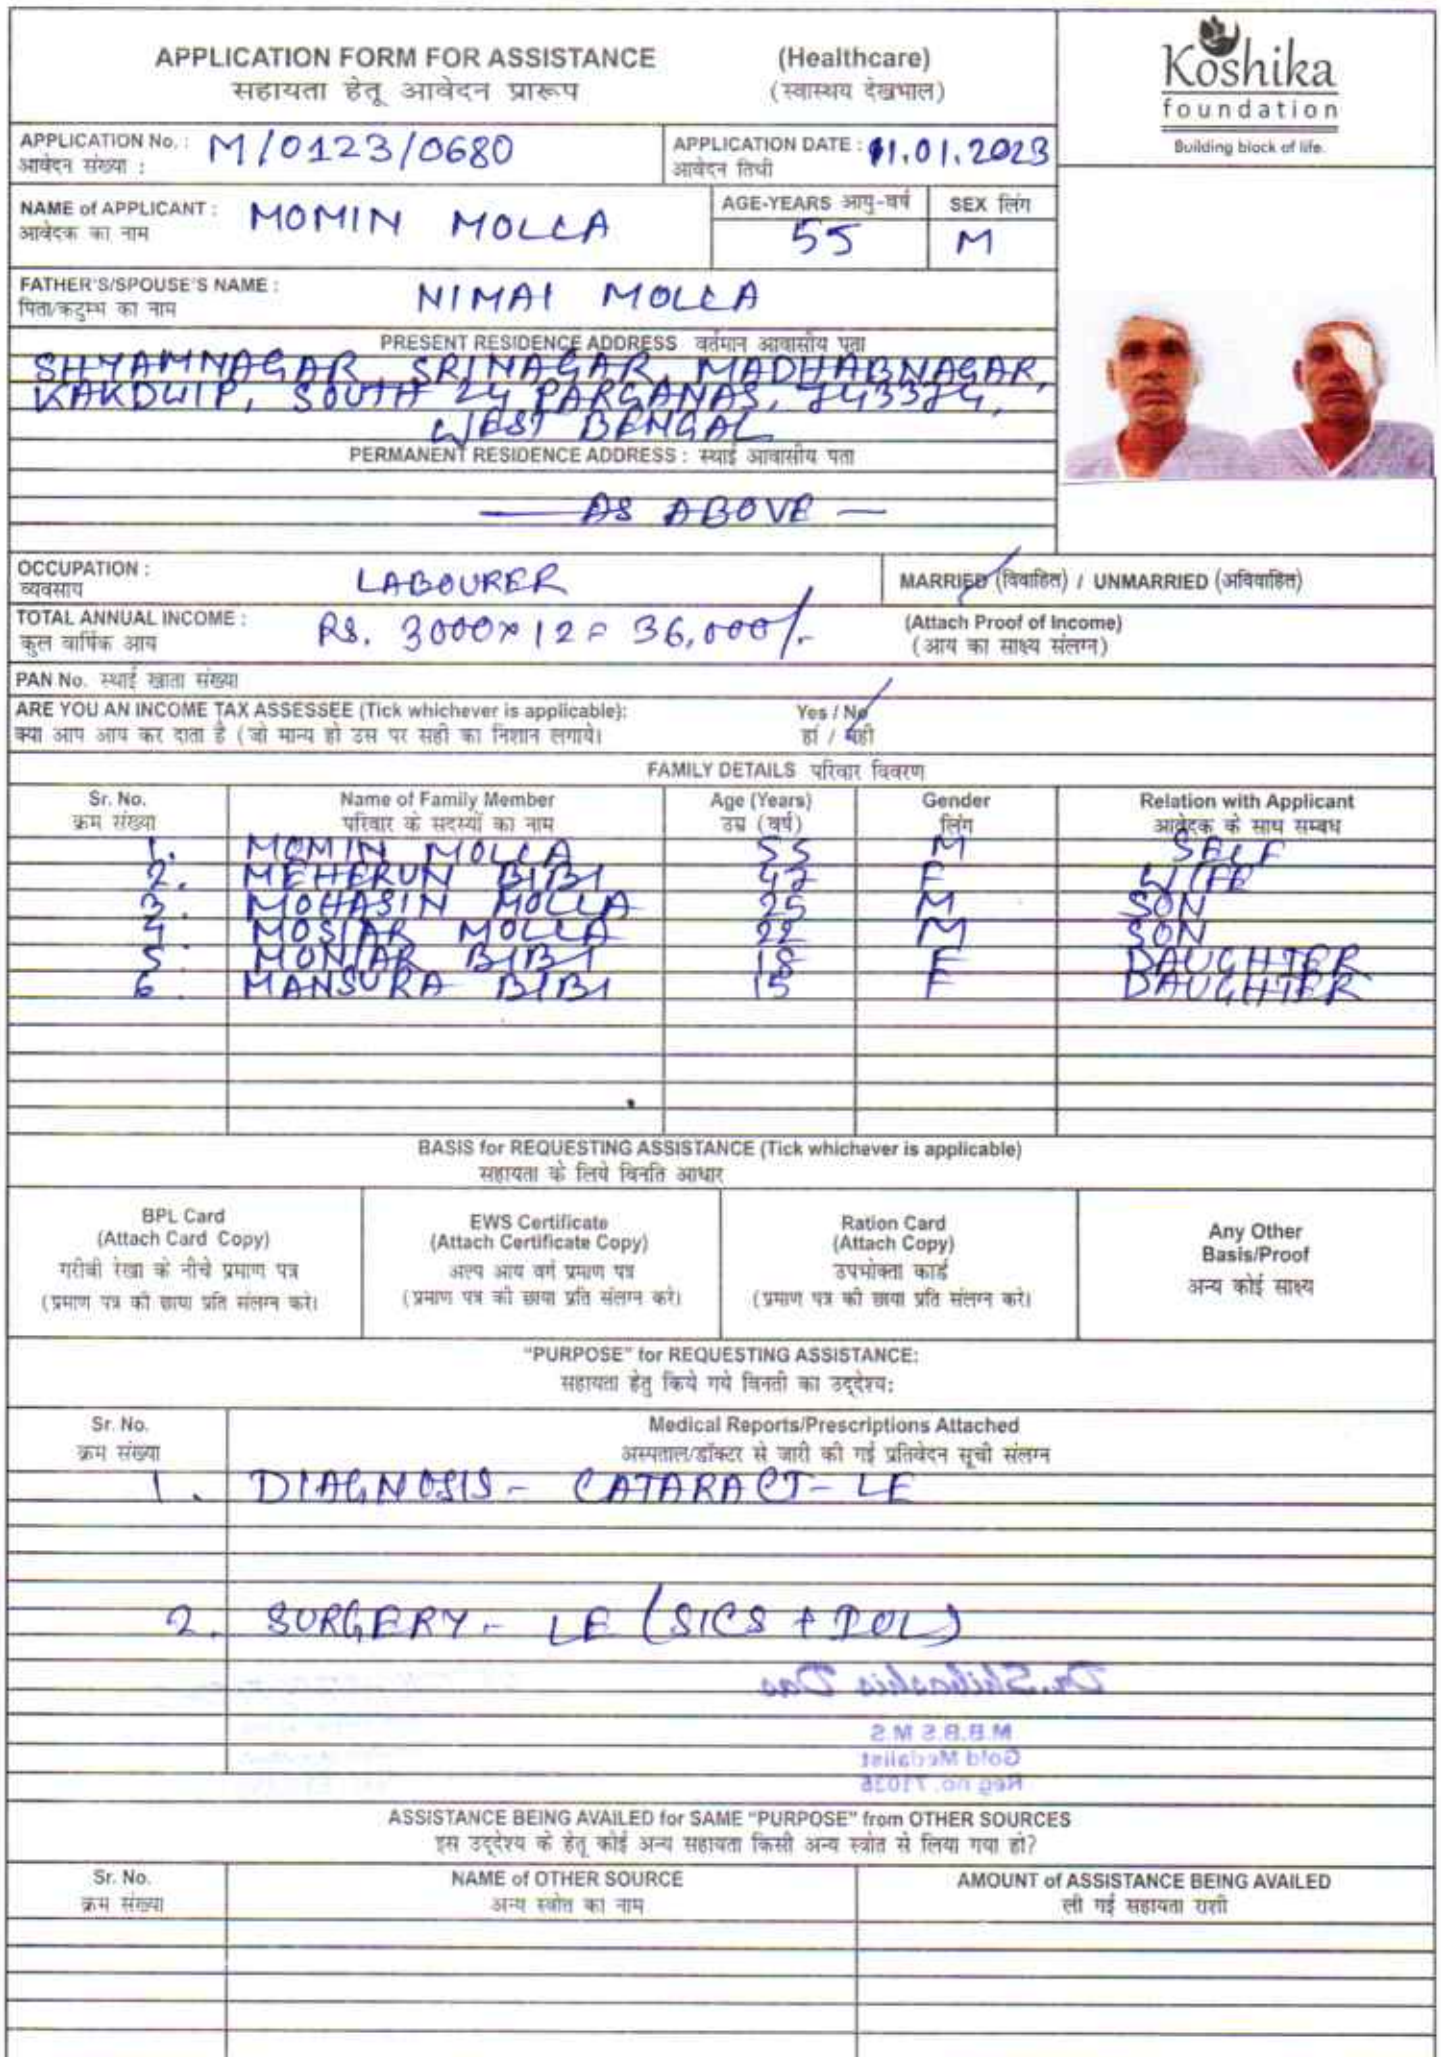 APPLICATION FORM FOR ASSISTANCE (Healthcare)
सहायता हेतू आवेदन प्रारूप (स्वास्थय देखभाल)
Koshika
foundation
Building block of life.
APPLICATION No. : M/0123/0680
आवेदन संख्या :
APPLICATION DATE : 11.01.2023
आवेदन तिथी
NAME of APPLICANT : MOMIN MOLLA
आवेदक का नाम
AGE-YEARS आयु-वर्ष 55
SEX लिंग M
FATHER'S/SPOUSE'S NAME : NIMAI MOLLA
पिता/कटुम्भ का नाम
PRESENT RESIDENCE ADDRESS वर्तमान आवासीय पता
SHYAMNAGAR, SRINAGAR, MADHABNAGAR,
KAKDWIP, SOUTH 24 PARGANAS, 743374,
WEST BENGAL
PERMANENT RESIDENCE ADDRESS : स्थाई आवासीय पता
— AS ABOVE —
OCCUPATION : LABOURER
व्यवसाय
MARRIED (विवाहित) / UNMARRIED (अविवाहित)
TOTAL ANNUAL INCOME : RS. 3000×12= 36,000/-
कुल वार्षिक आय
(Attach Proof of Income)
(आय का साक्ष्य संलग्न)
PAN No. स्थाई खाता संख्या
ARE YOU AN INCOME TAX ASSESSEE (Tick whichever is applicable): Yes / No
क्या आप आय कर दाता है (जो मान्य हो उस पर सही का निशान लगाये। हां / नही
FAMILY DETAILS परिवार विवरण
Sr. No. Name of Family Member Age (Years) Gender Relation with Applicant
क्रम संख्या परिवार के सदस्यों का नाम उम्र (वर्ष) लिंग आवेदक के साथ सम्बध
1. MOMIN MOLLA 55 M SELF
2. MEHERUN BIBI 47 F WIFE
3. MOHASIN MOLLA 25 M SON
4 MOSIAR MOLLA 22 M SON
5 MONJAR BIBI 18 F DAUGHTER
6 MANSURA BIBI 15 F DAUGHTER
BASIS for REQUESTING ASSISTANCE (Tick whichever is applicable)
सहायता के लिये विनति आधार
BPL Card
(Attach Card Copy)
गरीबी रेखा के नीचे प्रमाण पत्र
(प्रमाण पत्र की छाया प्रति संलग्न करे।
EWS Certificate
(Attach Certificate Copy)
अल्प आय वर्ग प्रमाण पत्र
(प्रमाण पत्र की छाया प्रति संलग्न करे।
Ration Card
(Attach Copy)
उपभोक्ता कार्ड
(प्रमाण पत्र की छाया प्रति संलग्न करे।
Any Other
Basis/Proof
अन्य कोई साक्ष्य
"PURPOSE" for REQUESTING ASSISTANCE:
सहायता हेतु किये गये विनती का उद्देश्य:
Sr. No. Medical Reports/Prescriptions Attached
क्रम संख्या अस्पताल/डॉक्टर से जारी की गई प्रतिवेदन सूची संलग्न
1. DIAGNOSIS - CATARACT - LE
2. SURGERY - LE (SICS + IOL)
Dr. Shibashis Das
M.B.B.S M.S
Gold Medalist
Reg no. 71036
ASSISTANCE BEING AVAILED for SAME "PURPOSE" from OTHER SOURCES
इस उद्देश्य के हेतू कोई अन्य सहायता किसी अन्य स्त्रोत से लिया गया हो?
Sr. No. NAME of OTHER SOURCE AMOUNT of ASSISTANCE BEING AVAILED
क्रम संख्या अन्य स्त्रोत का नाम ली गई सहायता राशी